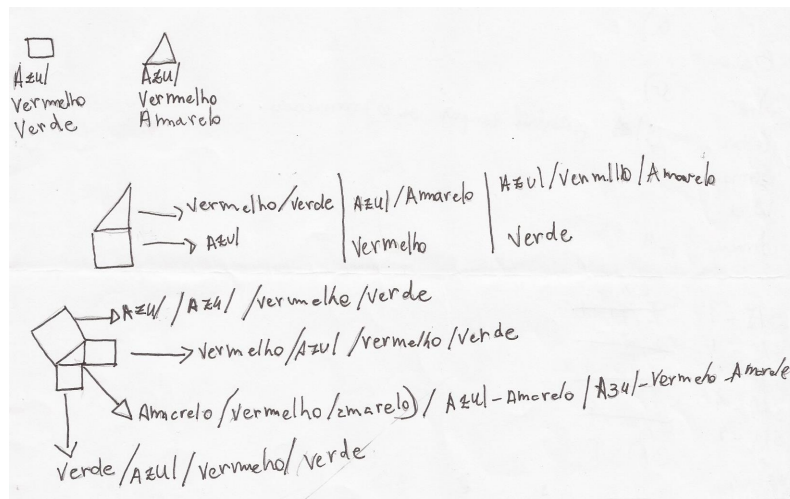 Azul
Vermelho
Verde
Azul
Vermelho
Amarelo
Vermelho/Verde | Azul/Amarelo | Azul/Venmllb/Amarelo
Azul | Vermelho | Verde
Azul/Azul/vermelho/verde
Vermelho/Azul/vermelho/Verde
Amacrelo/(vermelho/amarelo)/Azul-Amarelo/A3ul-Vermeho-Amarde
Verde/Azul/Vermeho/verde